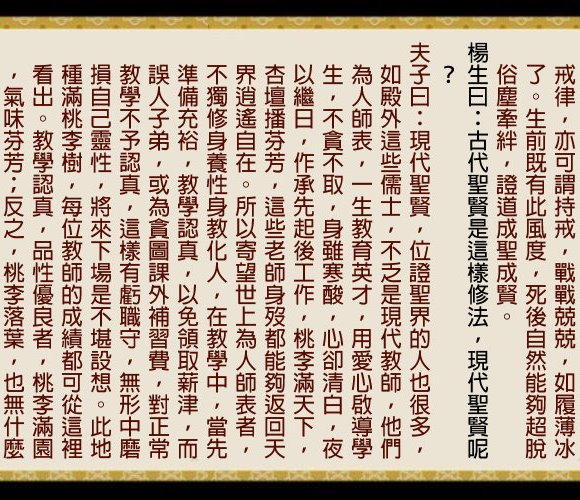 戒律，亦可謂持戒，戰戰兢兢，如履薄冰
了。生前既有此風度，死後自然能夠超脫
俗塵牽絆，證道成聖成賢。
楊生曰：古代聖賢是這樣修法，現代聖賢呢
？
夫子曰：現代聖賢，位證聖界的人也很多，
如殿外這些儒士，不乏是現代教師，他們
為人師表，一生教育英才，用愛心啟導學
生，不貪不取，身雖寒酸，心卻清白，夜
以繼日，作承先起後工作，桃李滿天下，
杏壇播芬芳，這些老師身歿都能夠返回天
界逍遙自在。所以寄望世上為人師表者，
不獨修身養性身教化人，在教學中，當先
準備充裕，教學認真，以免領取薪津，而
誤人子弟，或為貪圖課外補習費，對正常
教學不予認真，這樣有虧職守，無形中磨
損自己靈性，將來下場是不堪設想。此地
種滿桃李樹，每位教師的成績都可從這裡
看出。教學認真，品性優良者，桃李滿園
，氣味芬芳；反之，桃李落葉，也無什麼